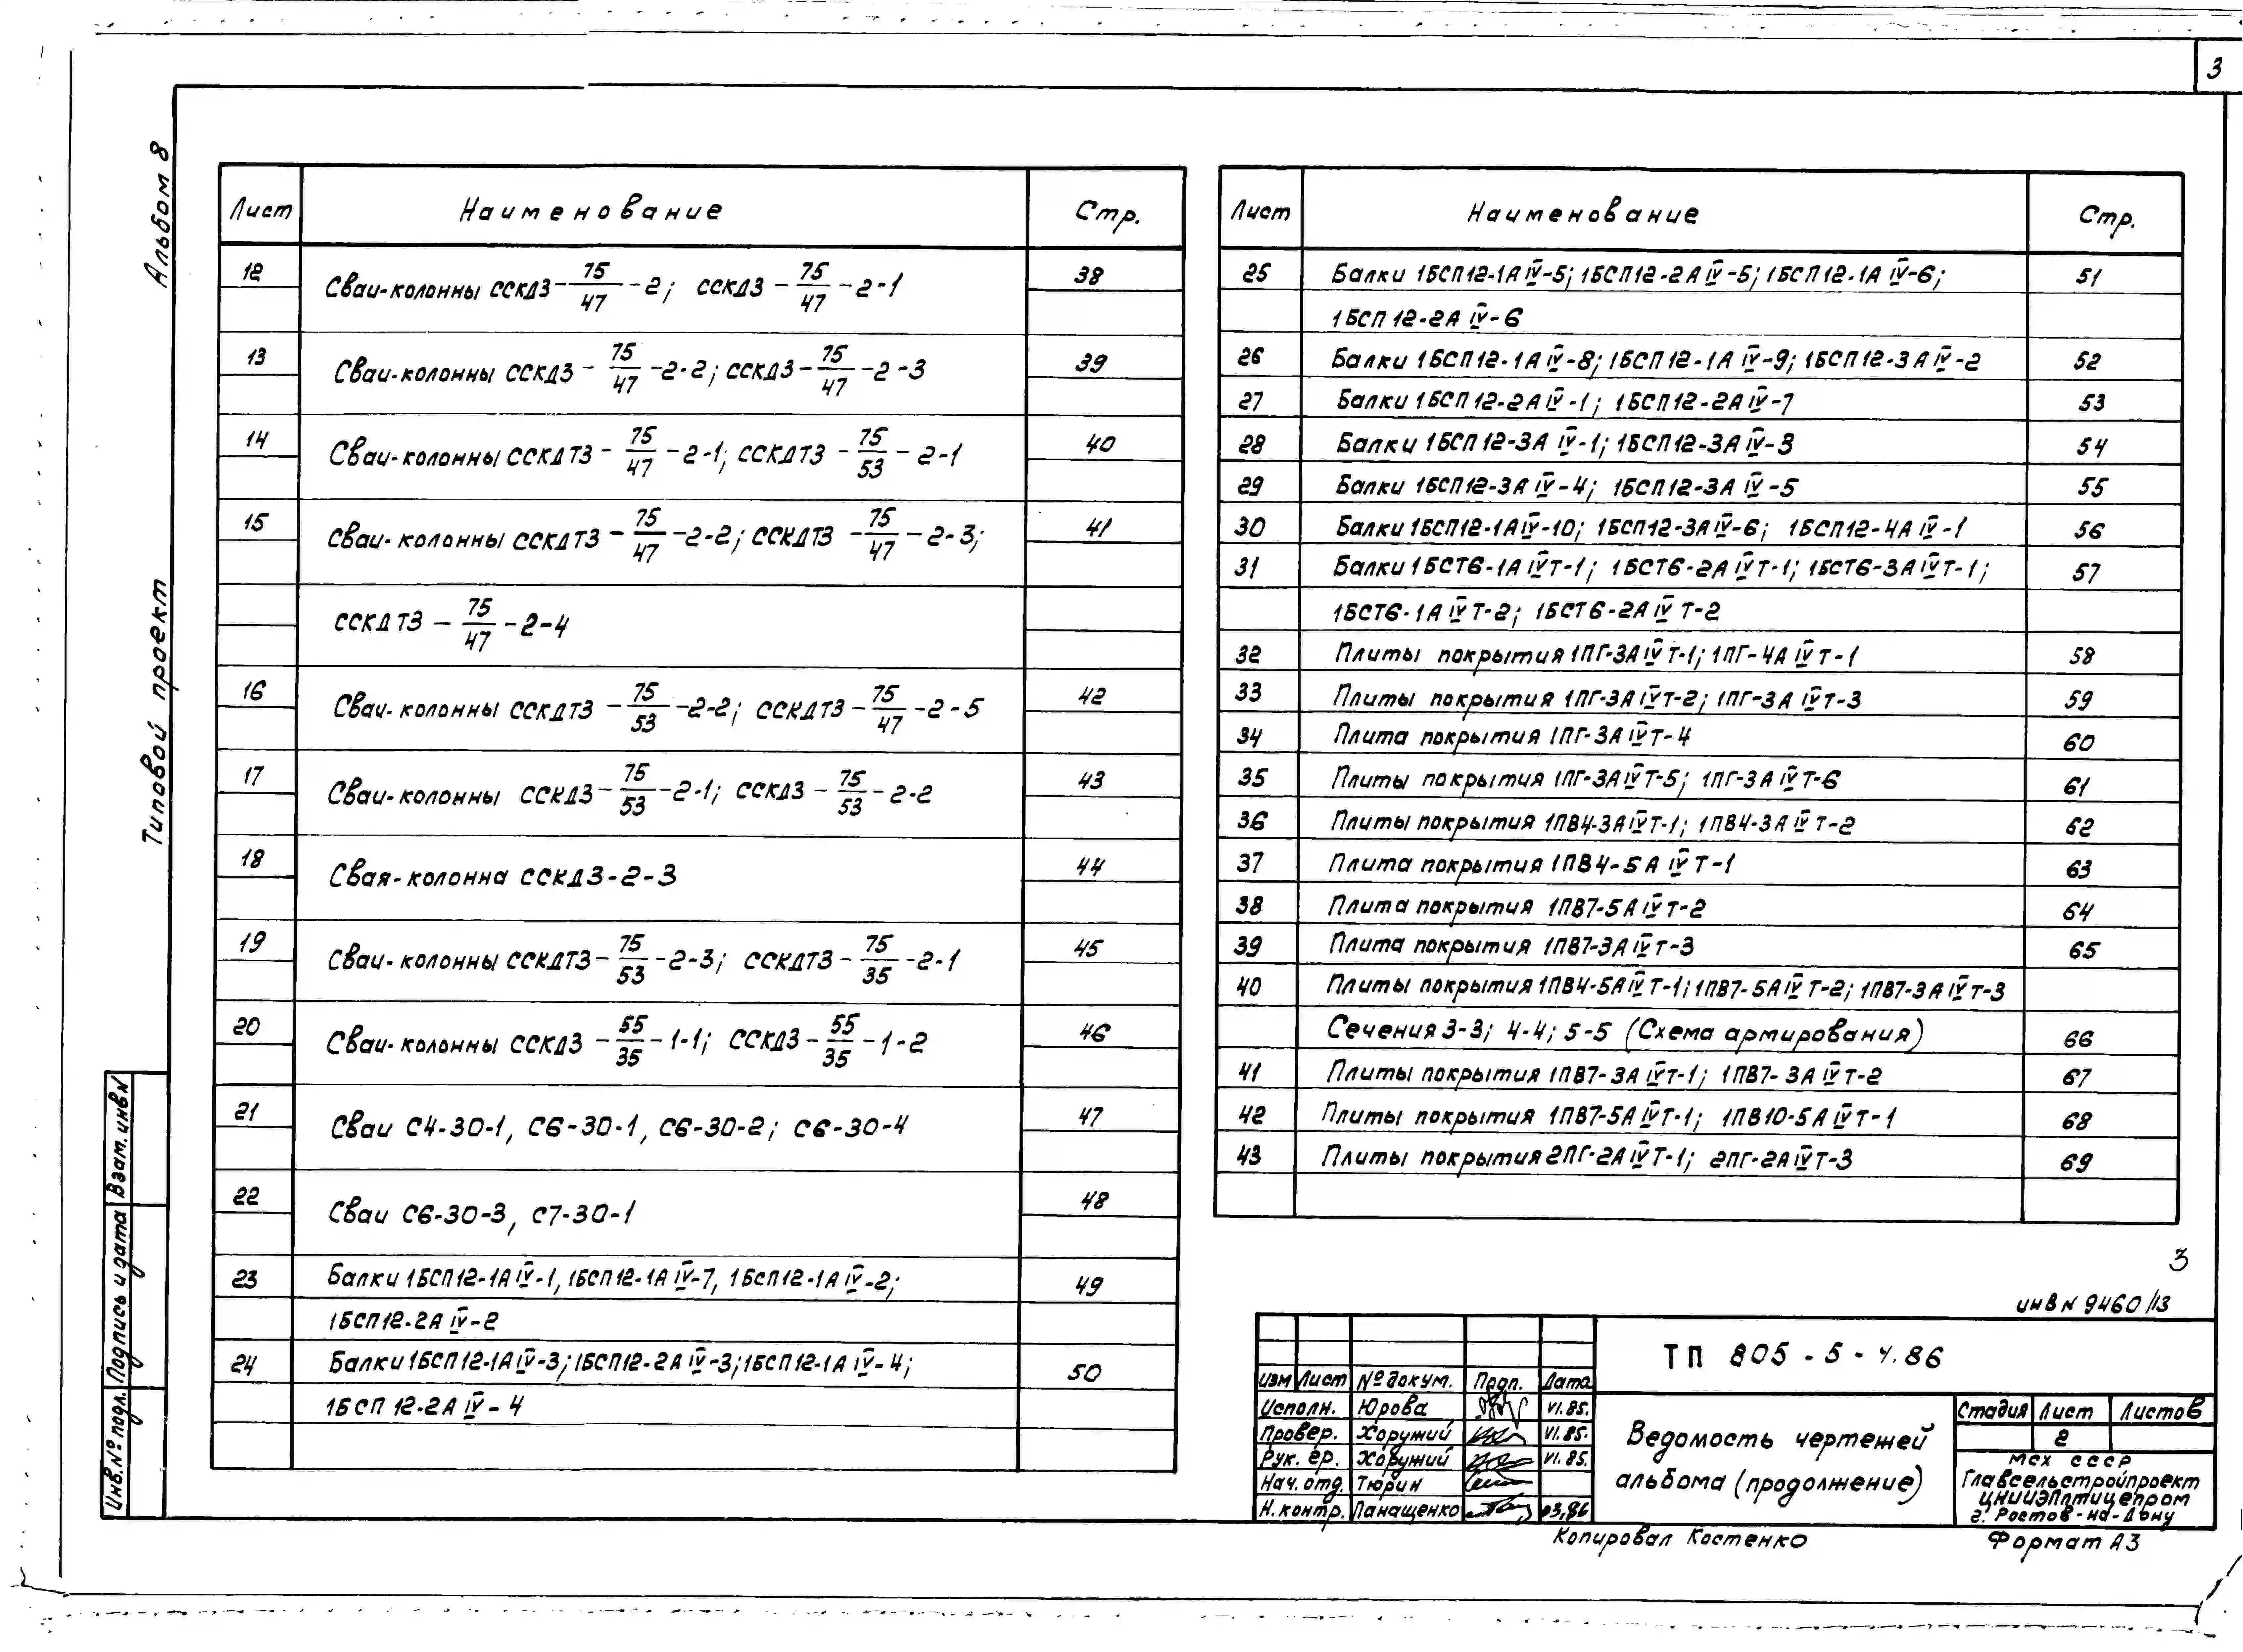 3
Альбом 8
Типовой проект
Лист Наименование Стр.
12 Сваи-колонны ССКД3-75/47-2; ССКД3-75/47-2-1 38
13 Сваи-колонны ССКД3-75/47-2-2; ССКД3-75/47-2-3 39
14 Сваи-колонны ССКДТ3-75/47-2-1; ССКДТ3-75/53-2-1 40
15 Сваи-колонны ССКДТ3-75/47-2-2; ССКДТ3-75/47-2-3; 41
ССКДТ3-75/47-2-4
16 Сваи-колонны ССКДТ3-75/53-2-2; ССКДТ3-75/47-2-5 42
17 Сваи-колонны ССКД3-75/53-2-1; ССКД3-75/53-2-2 43
18 Свая-колонна ССКД3-2-3 44
19 Сваи-колонны ССКДТ3-75/53-2-3; ССКДТ3-75/35-2-1 45
20 Сваи-колонны ССКД3-55/35-1-1; ССКД3-55/35-1-2 46
21 Сваи С4-30-1, С6-30-1, С6-30-2; С6-30-4 47
22 Сваи С6-30-3, С7-30-1 48
23 Балки 1БСП12-1АIV-1, 1БСП12-1АIV-7, 1БСП12-1АIV-2; 49
1БСП12-2АIV-2
24 Балки 1БСП12-1АIV-3; 1БСП12-2АIV-3; 1БСП12-1АIV-4; 50
1БСП12-2АIV-4
Лист Наименование Стр.
25 Балки 1БСП12-1АIV-5; 1БСП12-2АIV-5; 1БСП12-1АIV-6; 51
1БСП12-2АIV-6
26 Балки 1БСП12-1АIV-8; 1БСП12-1АIV-9; 1БСП12-3АIV-2 52
27 Балки 1БСП12-2АIV-1; 1БСП12-2АIV-7 53
28 Балки 1БСП12-3АIV-1; 1БСП12-3АIV-3 54
29 Балки 1БСП12-3АIV-4; 1БСП12-3АIV-5 55
30 Балки 1БСП12-1АIV-10; 1БСП12-3АIV-6; 1БСП12-4АIV-1 56
31 Балки 1БСТ6-1АIVТ-1; 1БСТ6-2АIVТ-1; 1БСТ6-3АIVТ-1; 57
1БСТ6-1АIVТ-2; 1БСТ6-2АIVТ-2
32 Плиты покрытия 1ПГ-3АIVТ-1; 1ПГ-4АIVТ-1 58
33 Плиты покрытия 1ПГ-3АIVТ-2; 1ПГ-3АIVТ-3 59
34 Плита покрытия 1ПГ-3АIVТ-4 60
35 Плиты покрытия 1ПГ-3АIVТ-5; 1ПГ-3АIVТ-6 61
36 Плиты покрытия 1ПВ4-3АIVТ-1; 1ПВ4-3АIVТ-2 62
37 Плита покрытия 1ПВ4-5АIVТ-1 63
38 Плита покрытия 1ПВ7-5АIVТ-2 64
39 Плита покрытия 1ПВ7-3АIVТ-3 65
40 Плиты покрытия 1ПВ4-5АIVТ-1; 1ПВ7-5АIVТ-2; 1ПВ7-3АIVТ-3
Сечения 3-3; 4-4; 5-5 (Схема армирования) 66
41 Плиты покрытия 1ПВ7-3АIVТ-1; 1ПВ7-3АIVТ-2 67
42 Плиты покрытия 1ПВ7-5АIVТ-1; 1ПВ10-5АIVТ-1 68
43 Плиты покрытия 2ПГ-2АIVТ-1; 2ПГ-2АIVТ-3 69
3
инв N 9460/13
Взам. инв N
Подпись и дата
Инв. № подл.
ТП 805-5-4.86
Изм Лист № докум. Подп. Дата
Исполн. Юрова VI.85.
Провер. Хоружий VI.85.
Рук. гр. Хоружий VI.85.
Нач. отд. Тюрин
Н. контр. Панащенко 03.86
Ведомость чертежей
альбома (продолжение)
Стадия Лист Листов
2
МСХ СССР
Главсельстройпроект
ЦНИИЭПптицепром
г. Ростов-на-Дону
Копировал Костенко Формат А3